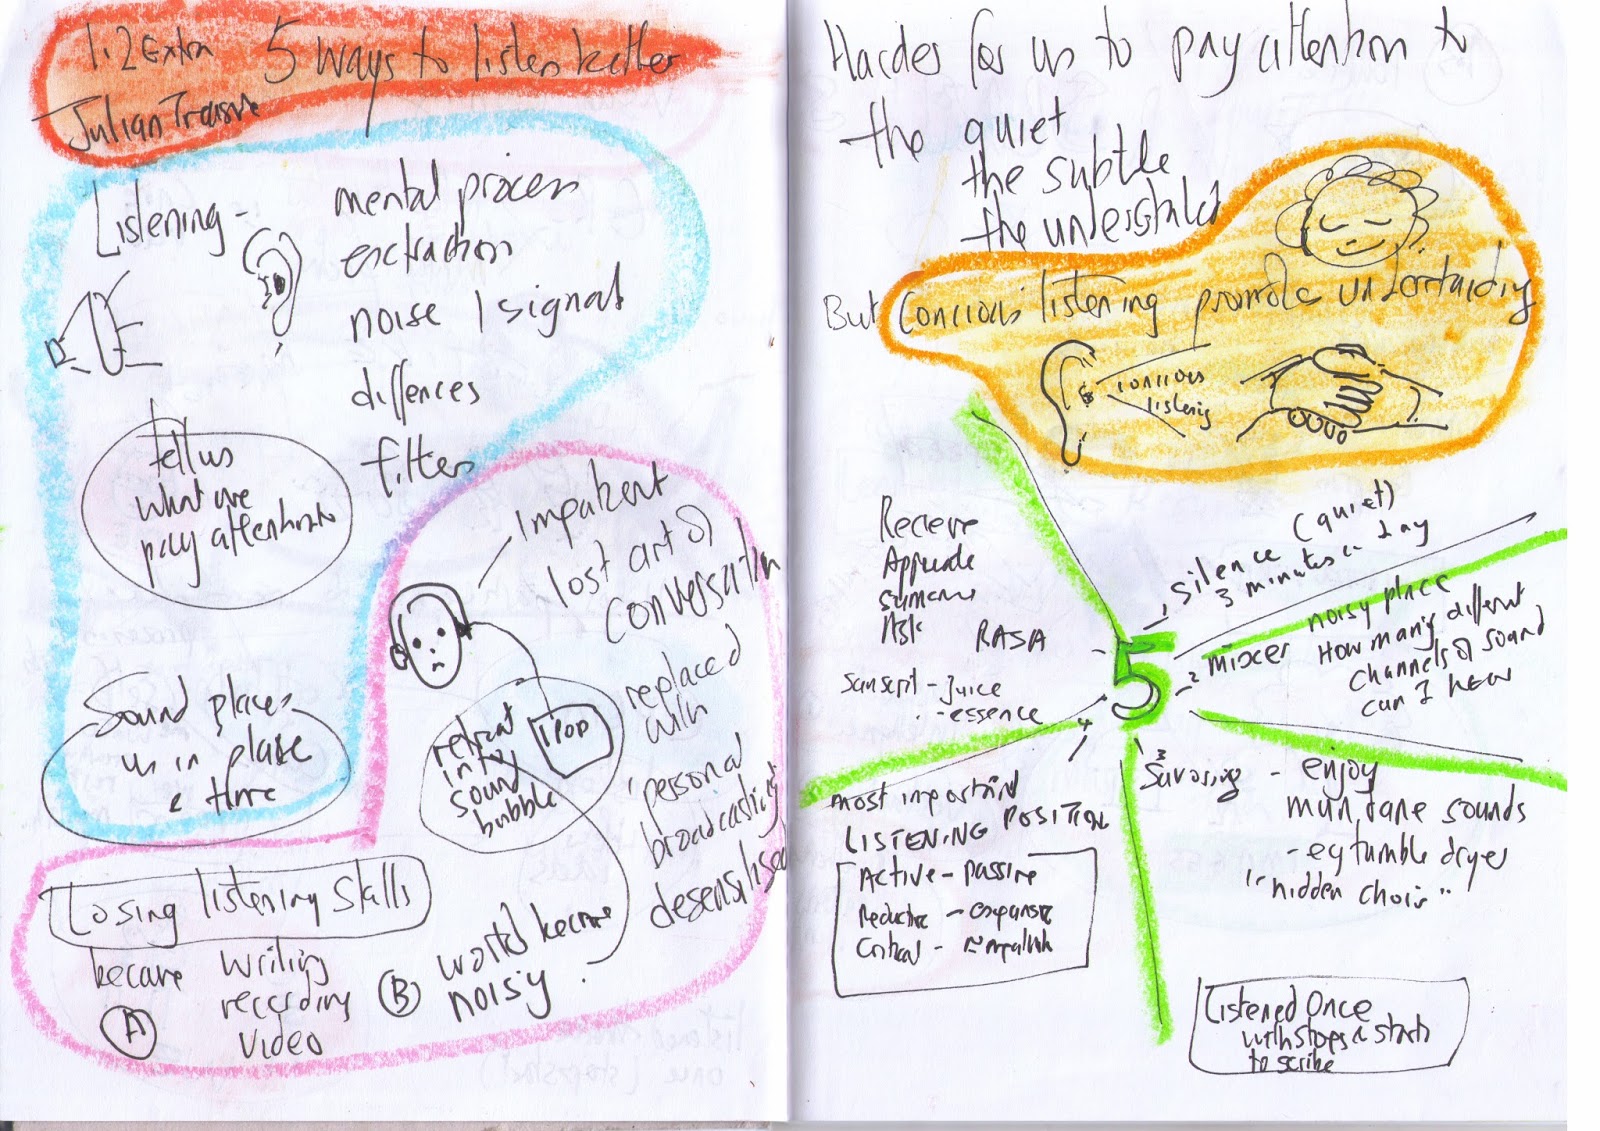 1.2 Extra 5 ways to listen better
Julian Treasure
Listening -
mental process
extraction
noise / signal
differences
filter
tell us
what we
pay attention to
Sound places
us in place
& time
impatient
lost art of
conversation
replaced
with
personal
broadcasting
desensitised
retreat
into
sound
bubble
iPOD
Losing listening skills
because
writing
recording
video
A
B
world became
noisy.
Harder for us to pay attention to
the quiet
the subtle
the understated
But Concious listening promotes understanding
concious
listening
5
1 silence (quiet)
3 minutes a day
2 mixer
noisy place
How many different
channels of sound
can I hear
3 Savoring - enjoy
mundane sounds
- eg tumble dryer
"hidden choir"
4
most important
LISTENING POSITION
Active - passive
Reductive - expansive
Critical - empathic
Recieve
Appreciate
Summarise
Ask
RASA
Sanscript - Juice
- essence
Listened Once
with stops & starts
to scribe